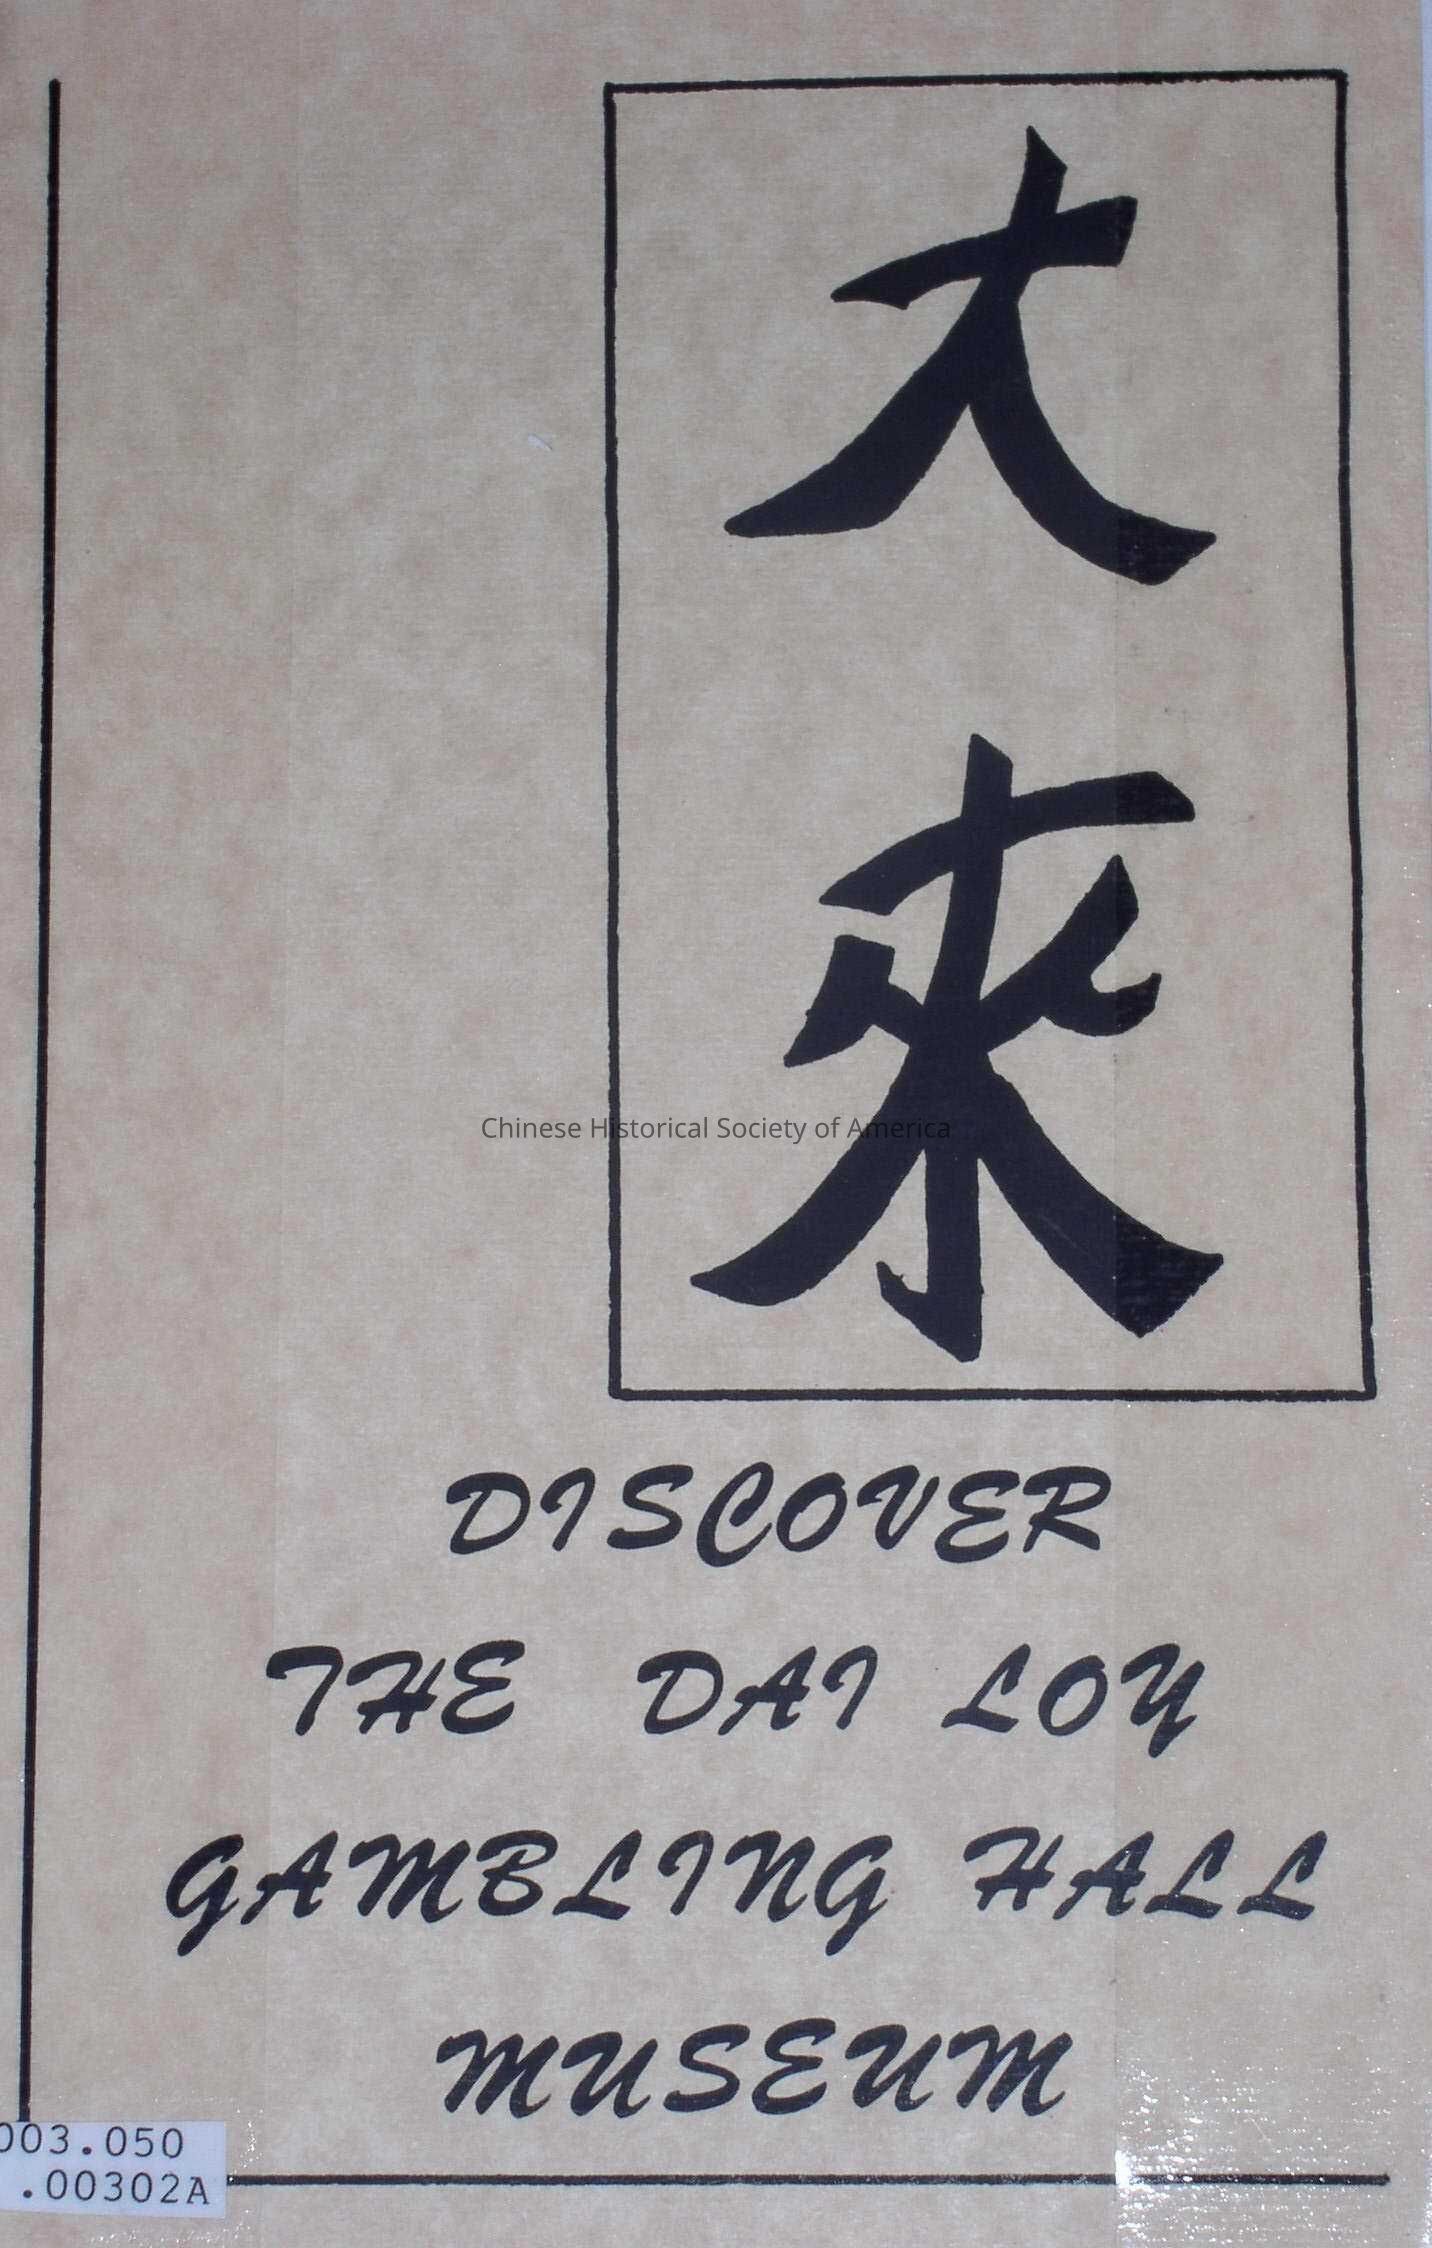 大
來
Chinese Historical Society of America
DISCOVER
THE DAI LOY
GAMBLING HALL
MUSEUM
003.050
.00302A